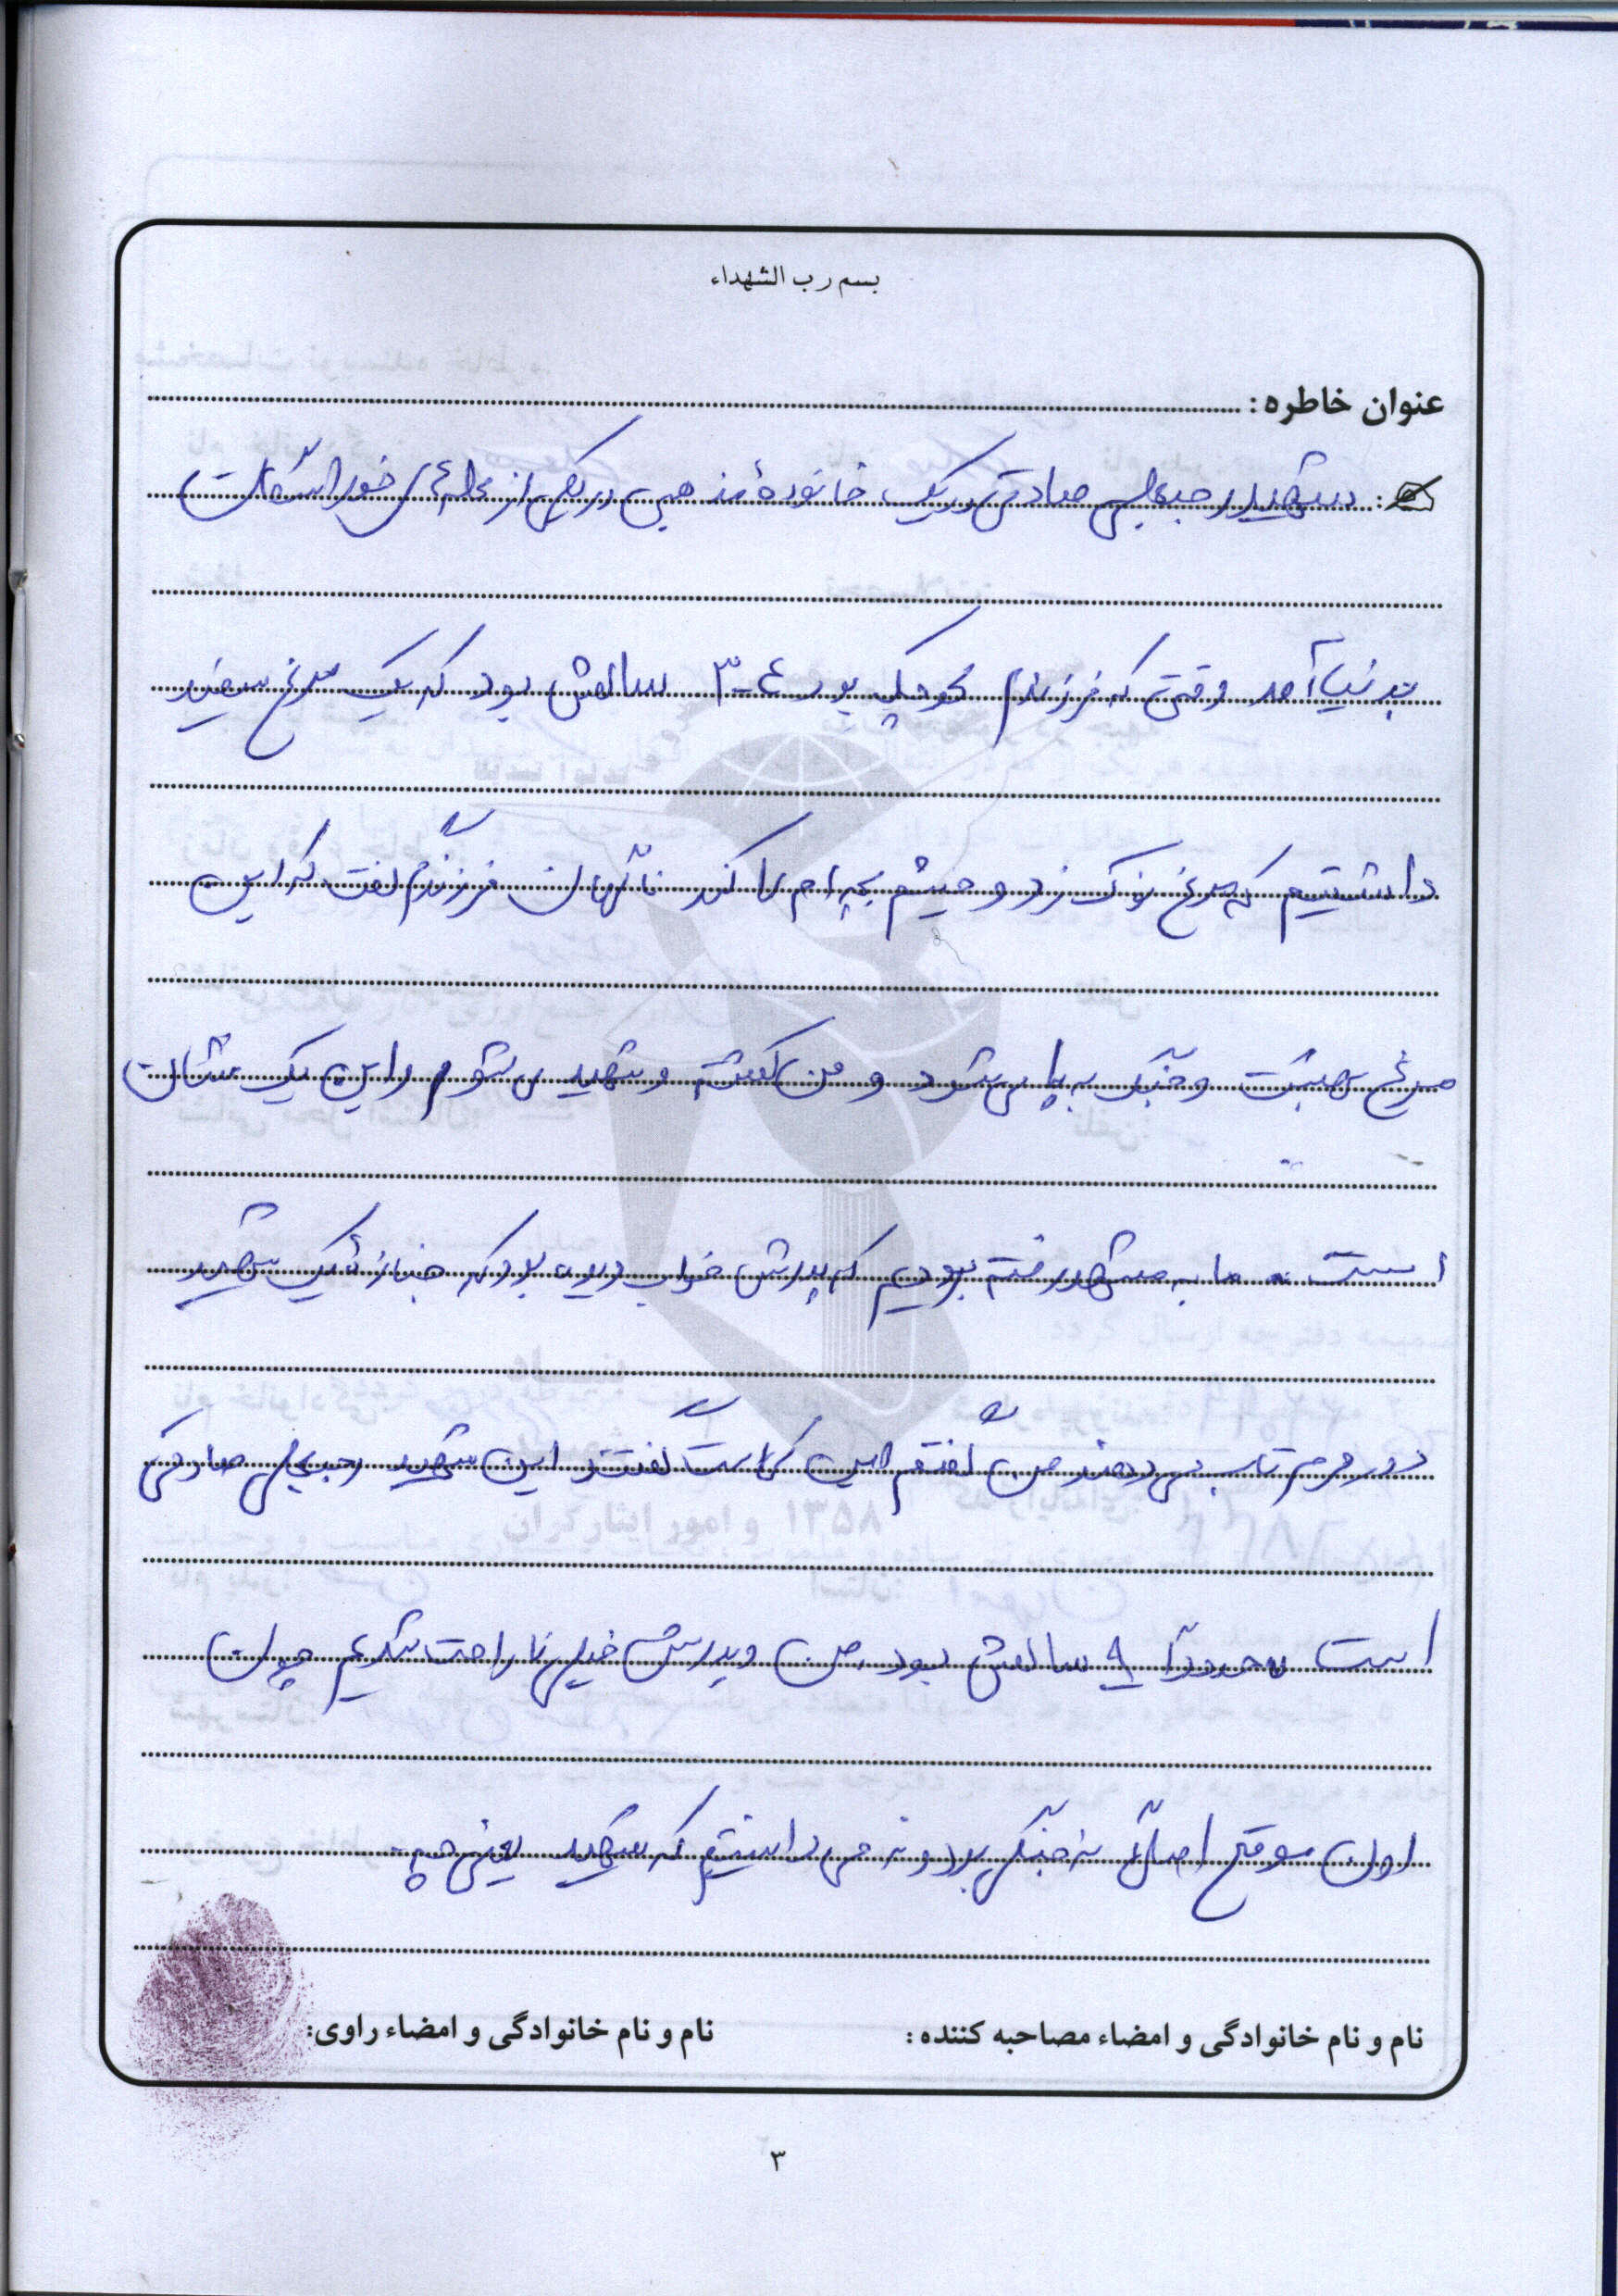 بسم رب الشهداء
عنوان خاطره :
شهید رجبعلی صادقی در یک خانوده مذهبی در یکی از محله ی خوراسگان
بدنیا آمد وقتی که فرزندم کوچک بود ۴-۳ سالش بود که یک مرغ سفید
داشتیم که مرغ نوک زد و چشم بچه ام را کند ناگهان فرزندم گفت که این
مرغ بهشت و جنگ به پا می شود و من کشته و شهید می شوم و این یک نشان
است ما به مشهد رفته بودیم که پدرش خواب دیده بود که جنازه یک شهید
دور حرم تاب می دهند من گفتم این کیست گفتند این شهید رجبعلی صادقی
است حدوداً ۹ سالش بود من و پدرش خیلی ناراحت شدیم چون
اون موقع اصلاً نه جنگی بود و نه می دانستیم که شهید یعنی چه
نام و نام خانوادگی و امضاء مصاحبه کننده : نام و نام خانوادگی و امضاء راوی:
۳